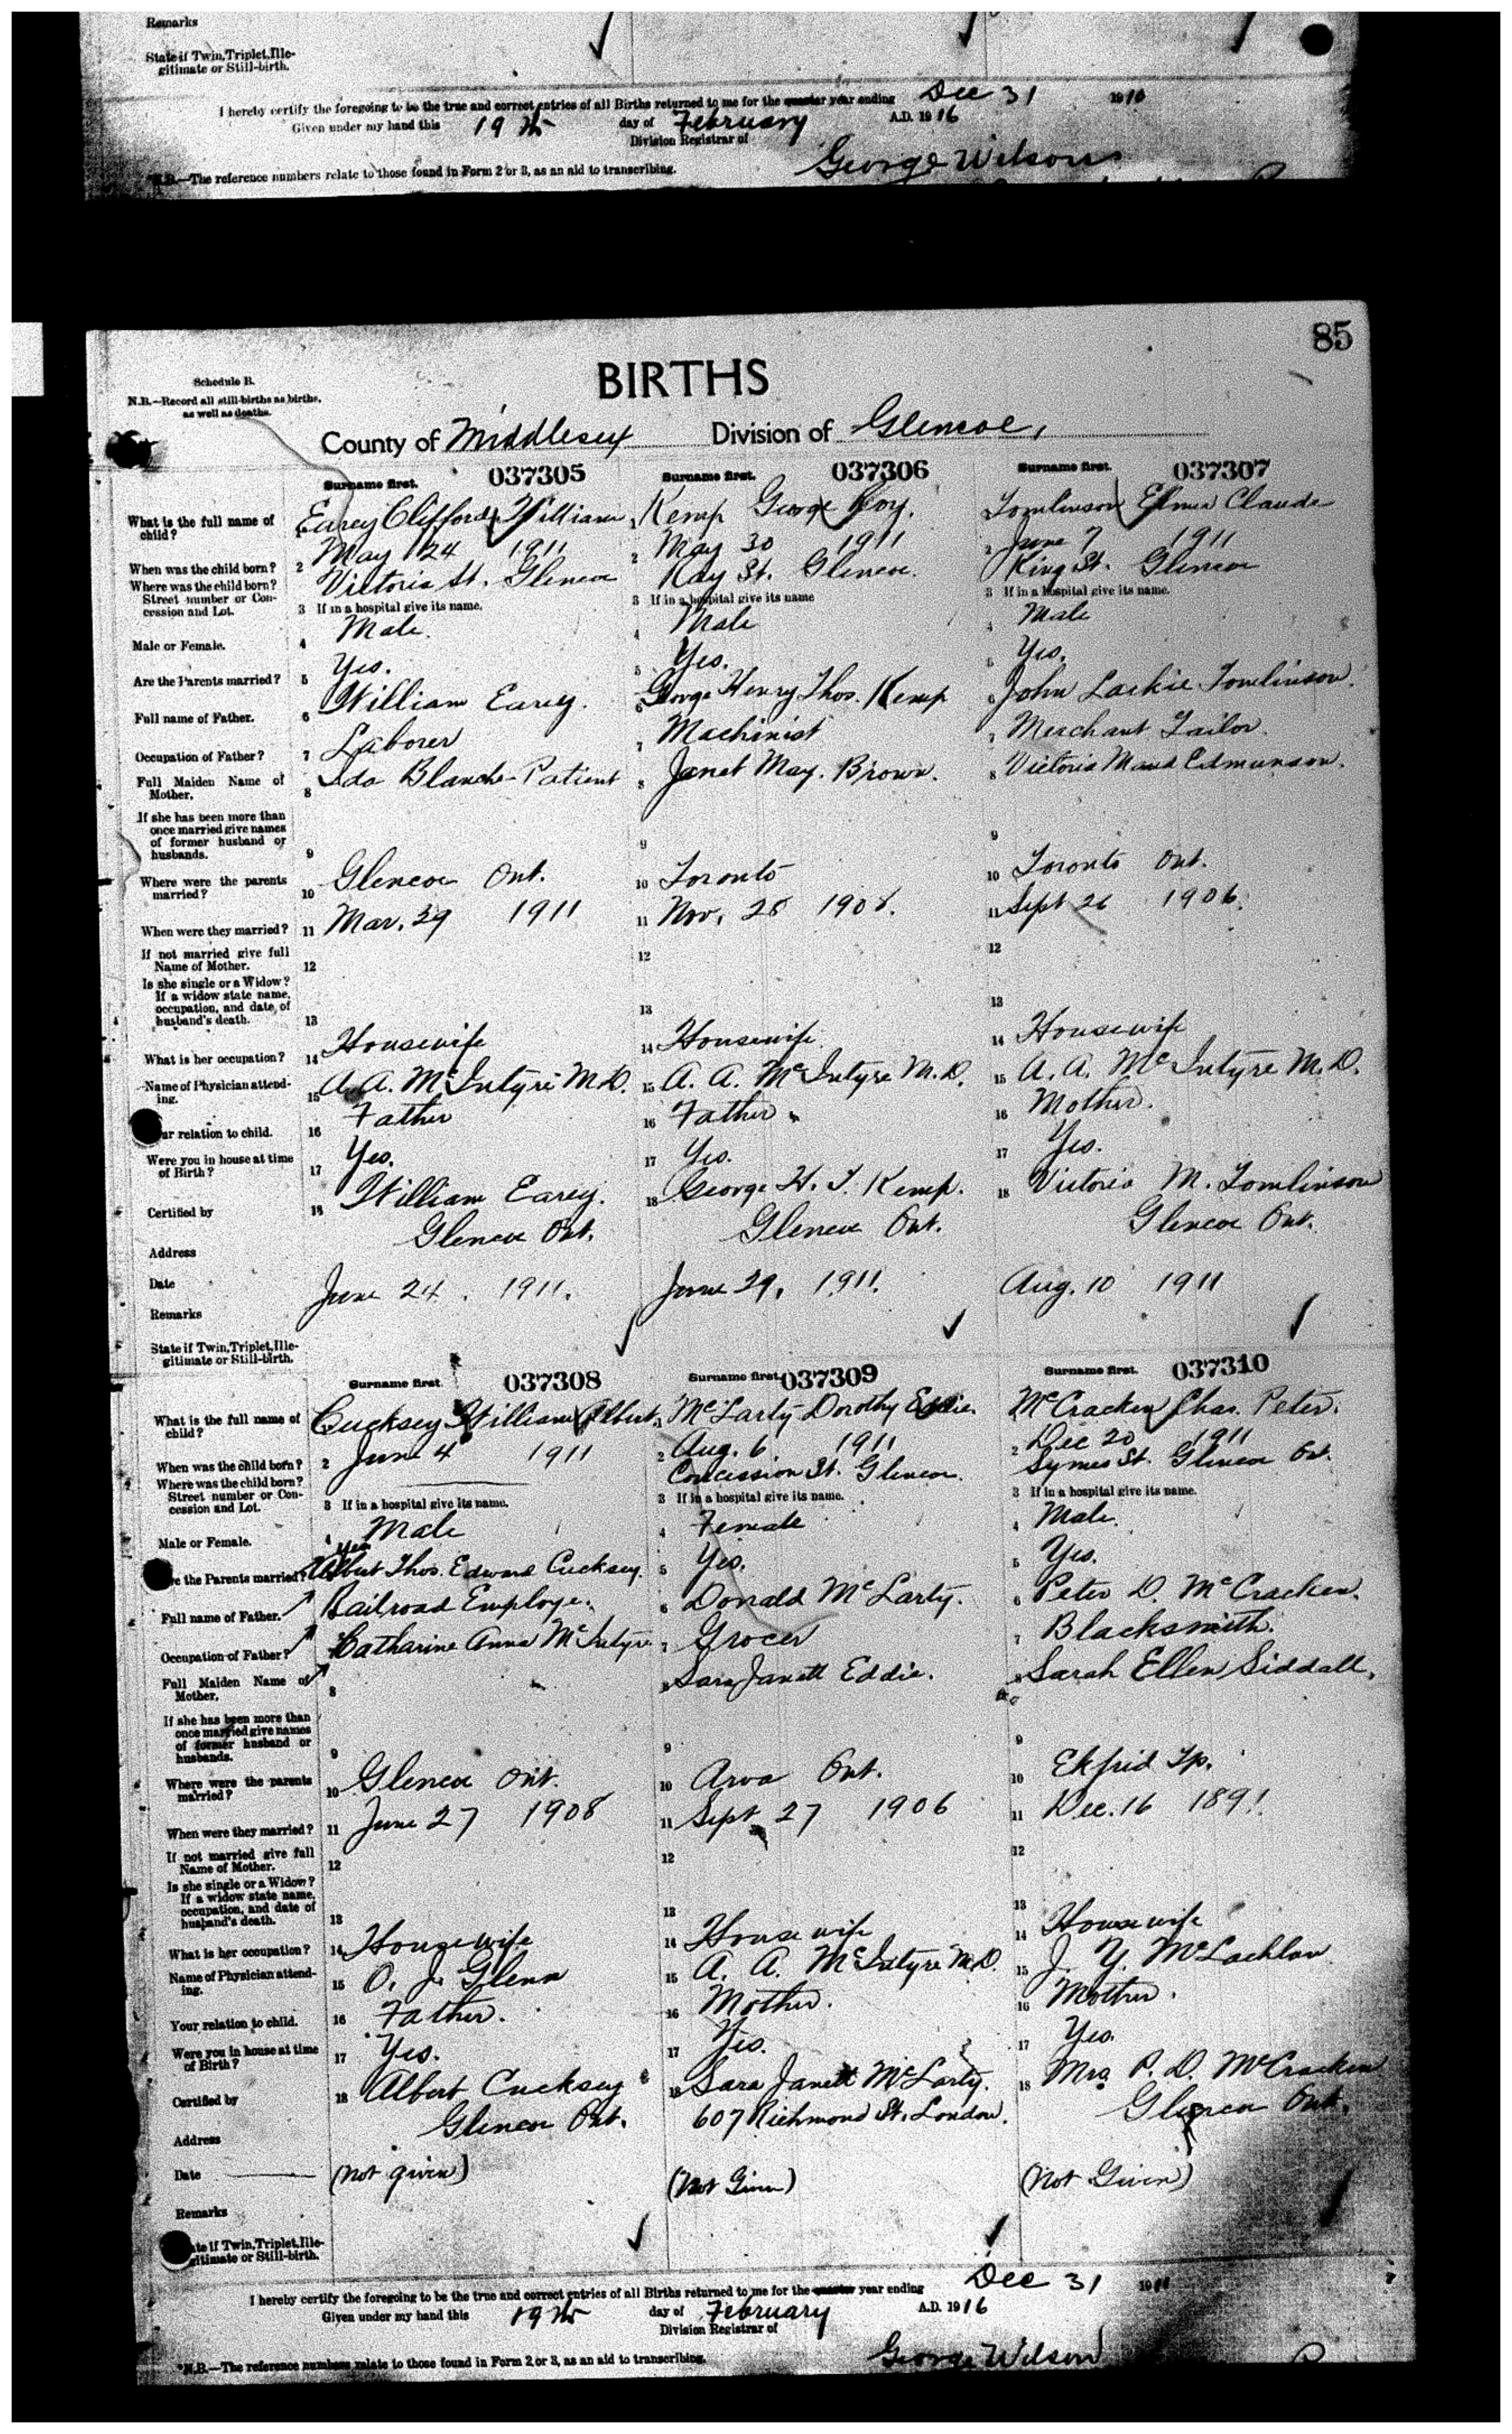 Remarks
State if Twin, Triplet, Ille-
gitimate or Still-birth.
I hereby certify the foregoing to be the true and correct entries of all Births returned to me for the quarter year ending Dec 31 1910
Given under my hand this 19th day of February A.D. 1916
Division Registrar of
George Wilson
N.B.—The reference numbers relate to those found in Form 2 or 3, as an aid to transcribing.
85
BIRTHS
Schedule B.
N.B.—Record all still-births as births,
as well as deaths.
County of Middlesex Division of Glencoe,
Surname first. 037305 Surname first. 037306 Surname first. 037307
What is the full name of child? Earey Clifford William 1 Kemp George Roy. Tomlinson Elmer Claude
When was the child born? 2 May 24 1911 2 May 30 1911 2 June 7 1911
Where was the child born? Street number or Concession and Lot. Victoria St. Glencoe Ray St. Glencoe. King St. Glencoe
3 If in a hospital give its name. 3 If in a hospital give its name 3 If in a hospital give its name.
Male or Female. 4 Male. 4 Male 4 Male
Are the Parents married? 5 Yes. 5 Yes. 5 Yes.
Full name of Father. 6 William Earey. 6 George Henry Thos. Kemp 6 John Lackie Tomlinson.
Occupation of Father? 7 Laborer 7 Machinist 7 Merchant Tailor.
Full Maiden Name of Mother. 8 Ida Blanche Patient 8 Janet May. Brown. 8 Victoria Maud Edmunson.
If she has been more than once married give names of former husband or husbands. 9 9 9
Where were the parents married? 10 Glencoe Ont. 10 Toronto 10 Toronto Ont.
When were they married? 11 Mar. 29 1911 11 Nov. 28 1908. 11 Sept 26 1906.
If not married give full Name of Mother. 12 12 12
Is she single or a Widow? If a widow state name, occupation, and date of husband's death. 13 13 13
What is her occupation? 14 Housewife 14 Housewife 14 Housewife
Name of Physician attending. 15 A. A. McIntyre M.D. 15 A. A. McIntyre M.D. 15 A. A. McIntyre M.D.
ur relation to child. 16 Father 16 Father 16 Mother.
Were you in house at time of Birth? 17 Yes. 17 Yes. 17 Yes.
Certified by 18 William Earey. 18 George H. T. Kemp. 18 Victoria M. Tomlinson
Address Glencoe Ont. Glencoe Ont. Glencoe Ont.
Date June 24. 1911. June 29, 1911. Aug. 10 1911
Remarks
State if Twin, Triplet, Ille-
gitimate or Still-birth.
Surname first 037308 Surname first 037309 Surname first. 037310
What is the full name of child? Cucksey William Albert. 1 McLarty Dorothy Eddie. McCracken Chas. Peter.
When was the child born? 2 June 4 1911 2 Aug. 6 1911 2 Dec 20 1911
Where was the child born? Street number or Concession and Lot. Concession St. Glencoe. Symes St. Glencoe On.
3 If in a hospital give its name. 3 If in a hospital give its name. 3 If in a hospital give its name.
Male or Female. 4 Male 4 Female 4 Male.
e the Parents married? Yes 5 Yes. 5 Yes.
Albert Thos. Edward Cucksey.
Full name of Father. Railroad Employe. 6 Donald McLarty. 6 Peter D. McCracken.
Occupation of Father? Catharine Anna McIntyre 7 Grocer 7 Blacksmith.
Full Maiden Name of Mother. 8 8 Sara Janett Eddie. 8 Sarah Ellen Siddall.
If she has been more than once married give names of former husband or husbands. 9 9 9
Where were the parents married? 10 Glencoe Ont. 10 Arva Ont. 10 Ekfrid Tp.
When were they married? 11 June 27 1908 11 Sept 27 1906 11 Dec. 16 1891
If not married give full Name of Mother. 12 12 12
Is she single or a Widow? If a widow state name, occupation, and date of husband's death. 13 13 13
What is her occupation? 14 Housewife 14 Housewife 14 Housewife
Name of Physician attending. 15 O. J. Glenn 15 A. A. McIntyre M.D. 15 J. Y. McLachlan
Your relation to child. 16 Father. 16 Mother. 16 Mother.
Were you in house at time of Birth? 17 Yes. 17 Yes. 17 Yes.
Certified by 18 Albert Cucksey 18 Sara Janett McLarty. 18 Mrs P. D. McCracken
Address Glencoe Ont. 607 Richmond St. London. Glencoe Ont.
Date (Not given) (Not Given) (Not Given)
Remarks
ate if Twin, Triplet, Ille-
gitimate or Still-birth.
I hereby certify the foregoing to be the true and correct entries of all Births returned to me for the quarter year ending Dec 31
Given under my hand this 19th day of February A.D. 1916
Division Registrar of
George Wilson
*N.B.—The reference numbers relate to those found in Form 2 or 3, as an aid to transcribing.